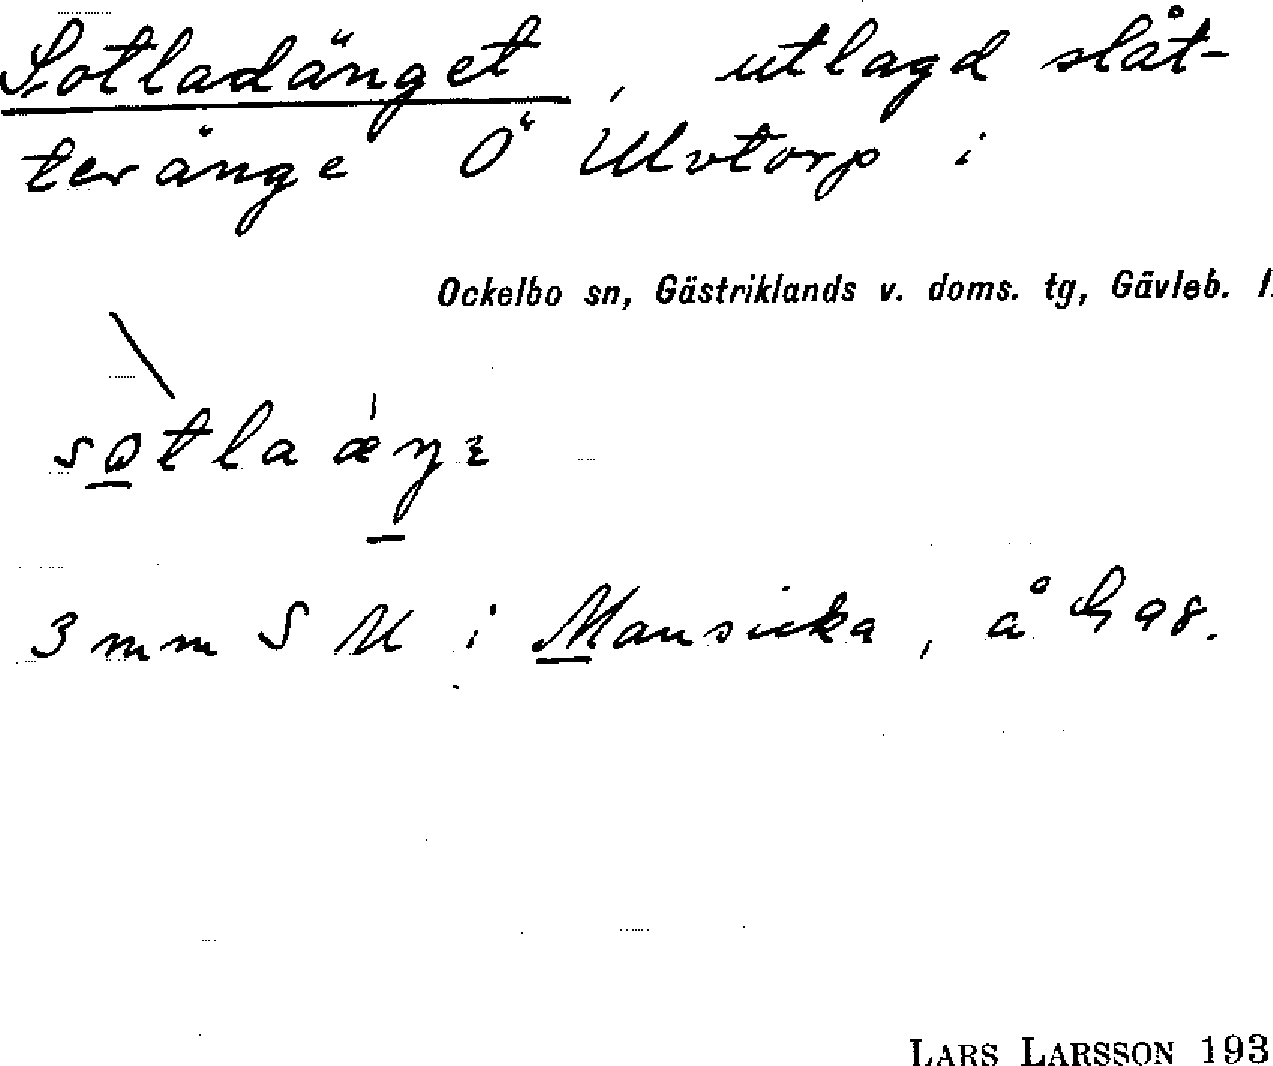 Sotladänget, utlagd slåt-
teränge Ö Ulvtorp i
Ockelbo sn, Gästriklands v. doms. tg, Gävleb. l.
3 mm S M i Mansicka, å G 98.
LARS LARSSON 193